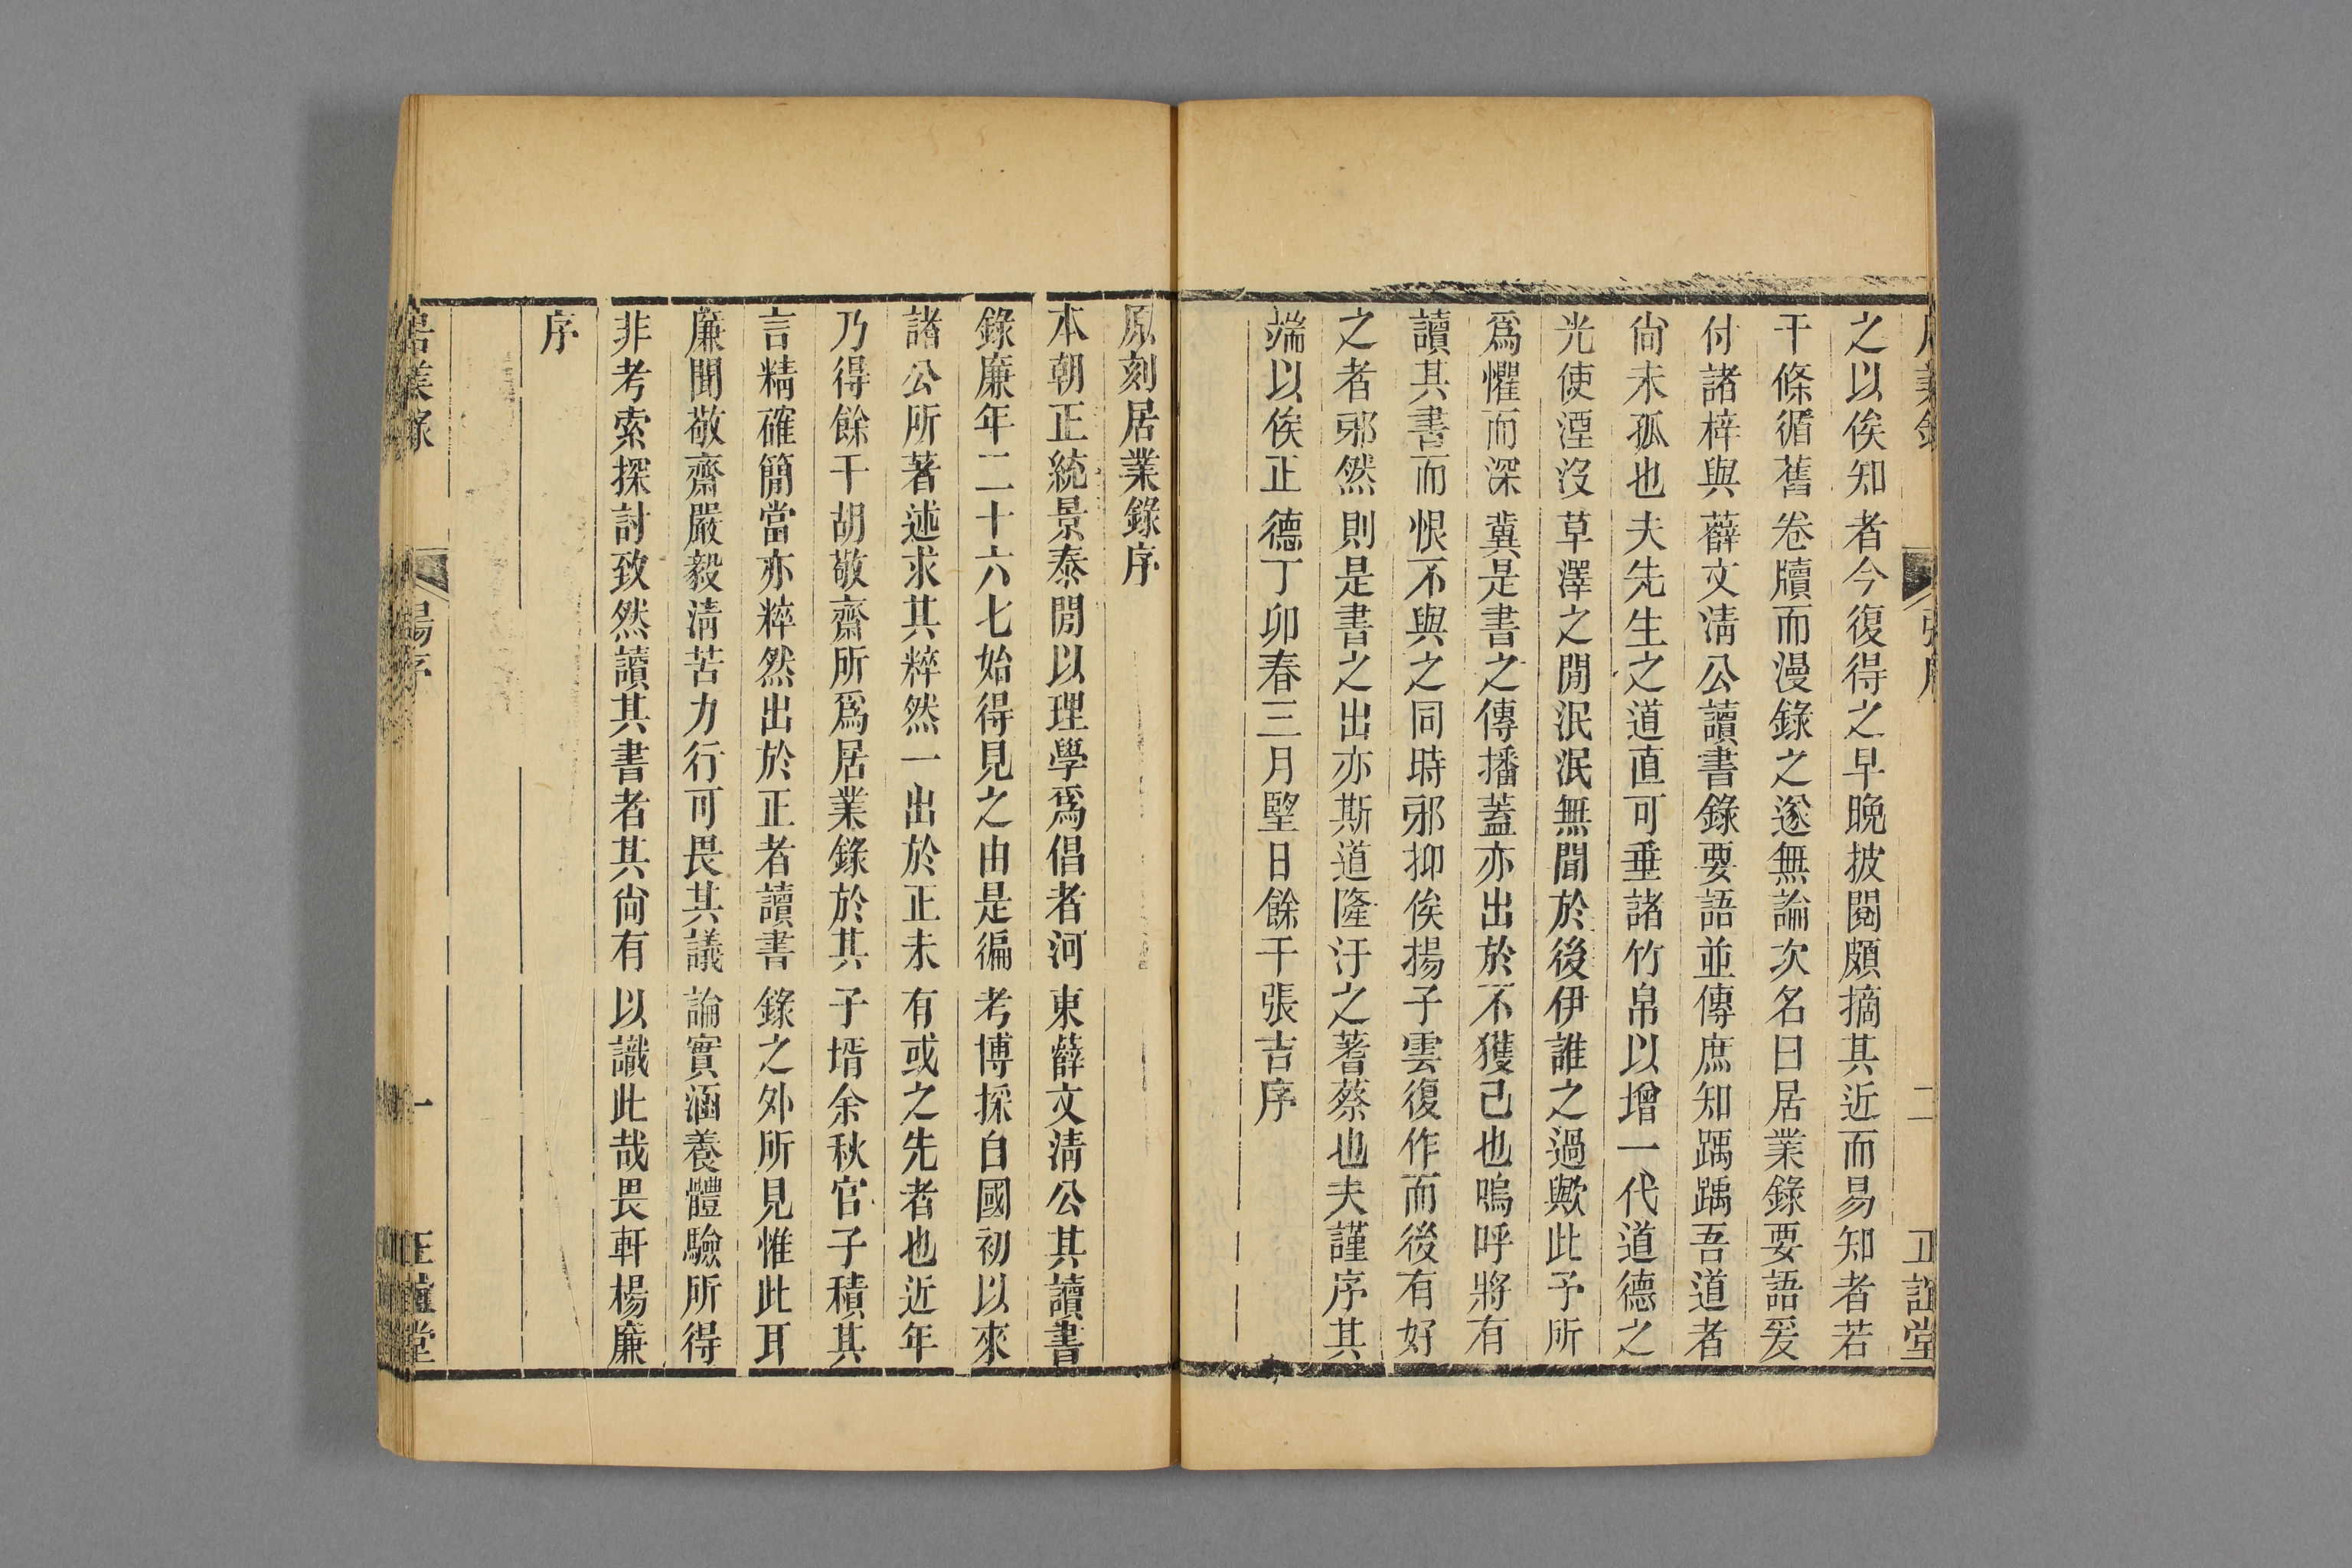 之以俟知者今復得之早晚披閱頗摘其近而易知者若
干條循舊卷牘而漫錄之遂無論次名曰居業錄要語爰
付諸梓與薛文淸公讀書錄要語並傳庶知踽踽吾道者
尙未孤也夫先生之道直可垂諸竹帛以增一代道德之
光使湮沒草澤之閒泯泯無聞於後伊誰之過歟此予所
爲懼而深冀是書之傳播蓋亦出於不獲已也嗚呼將有
讀其書而恨不與之同時邪抑俟揚子雲復作而後有好
之者邪然則是書之出亦斯道隆汙之蓍蔡也夫謹序其
端以俟正德丁卯春三月朢日餘干張吉序
原刻居業錄序
本朝正統景泰閒以理學爲倡者河東薛文淸公其讀書
錄廉年二十六七始得見之由是徧考博採自國初以來
諸公所著述求其粹然一出於正未有或之先者也近年
乃得餘干胡敬齋所爲居業錄於其子壻余秋官子積其
言精確簡當亦粹然出於正者讀書錄之外所見惟此耳
廉聞敬齋嚴毅淸苦力行可畏其議論實涵養體驗所得
非考索探討致然讀其書者其尙有以識此哉畏軒楊廉
序
居業錄
楊序
一
正誼堂